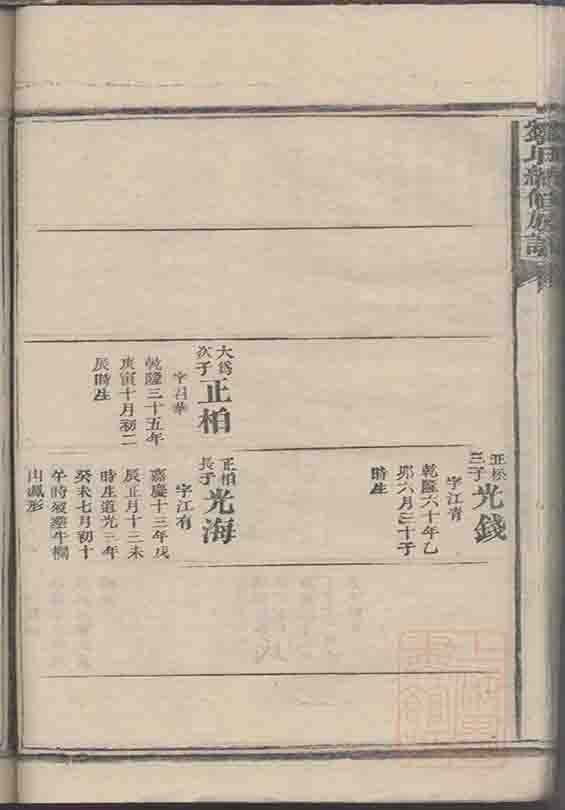 修族譜
大為
次子
正柏
字召華
乾隆三十五年
庚寅十月初二
辰時生
正松
三子
光錢
字江青
乾隆六十年乙
卯六月三十子
時生
正柏
長子
光海
字江有
嘉慶十三年戊
辰正月十三未
時生道光三年
癸未七月初十
午時歿塟牛欄
山鳳形